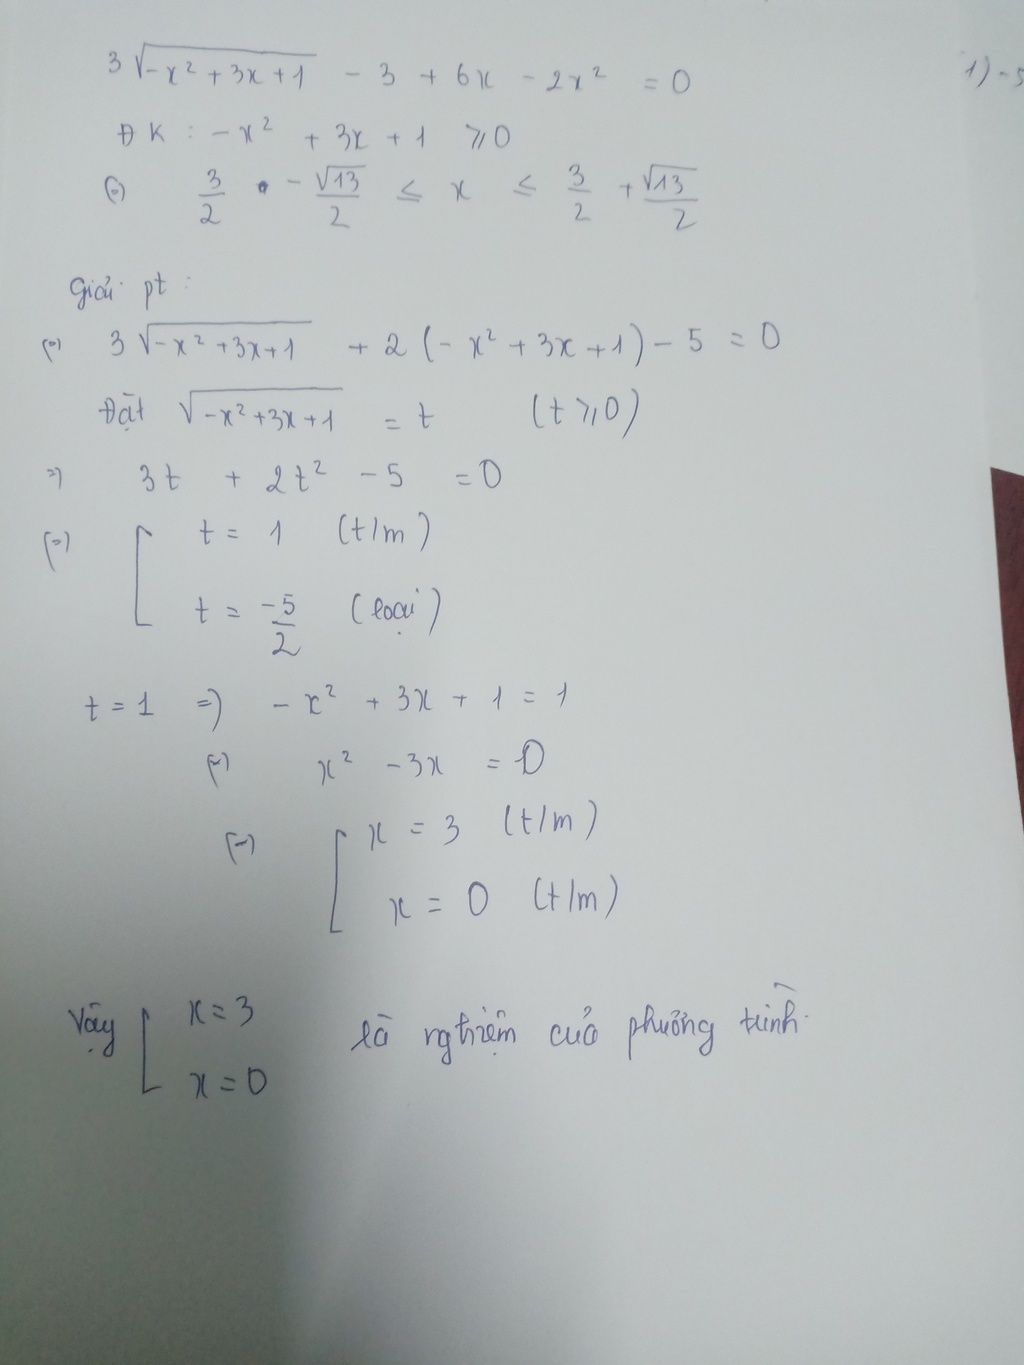 3√(-x² + 3x + 1) - 3 + 6x - 2x² = 0
1) - 5
ĐK : -x² + 3x + 1 ⩾ 0
(=) 3/2 - √13/2 ≤ x ≤ 3/2 + √13/2
Giải pt :
(=) 3√(-x² + 3x + 1) + 2(-x² + 3x + 1) - 5 = 0
Đặt √(-x² + 3x + 1) = t (t ⩾ 0)
=) 3t + 2t² - 5 = 0
(=) [ t = 1 (t/m)
t = -5/2 (loại)
t = 1 =) -x² + 3x + 1 = 1
(=) x² - 3x = 0
(=) [ x = 3 (t/m)
x = 0 (t/m)
Vậy [ x = 3
x = 0 là nghiệm của phương trình.